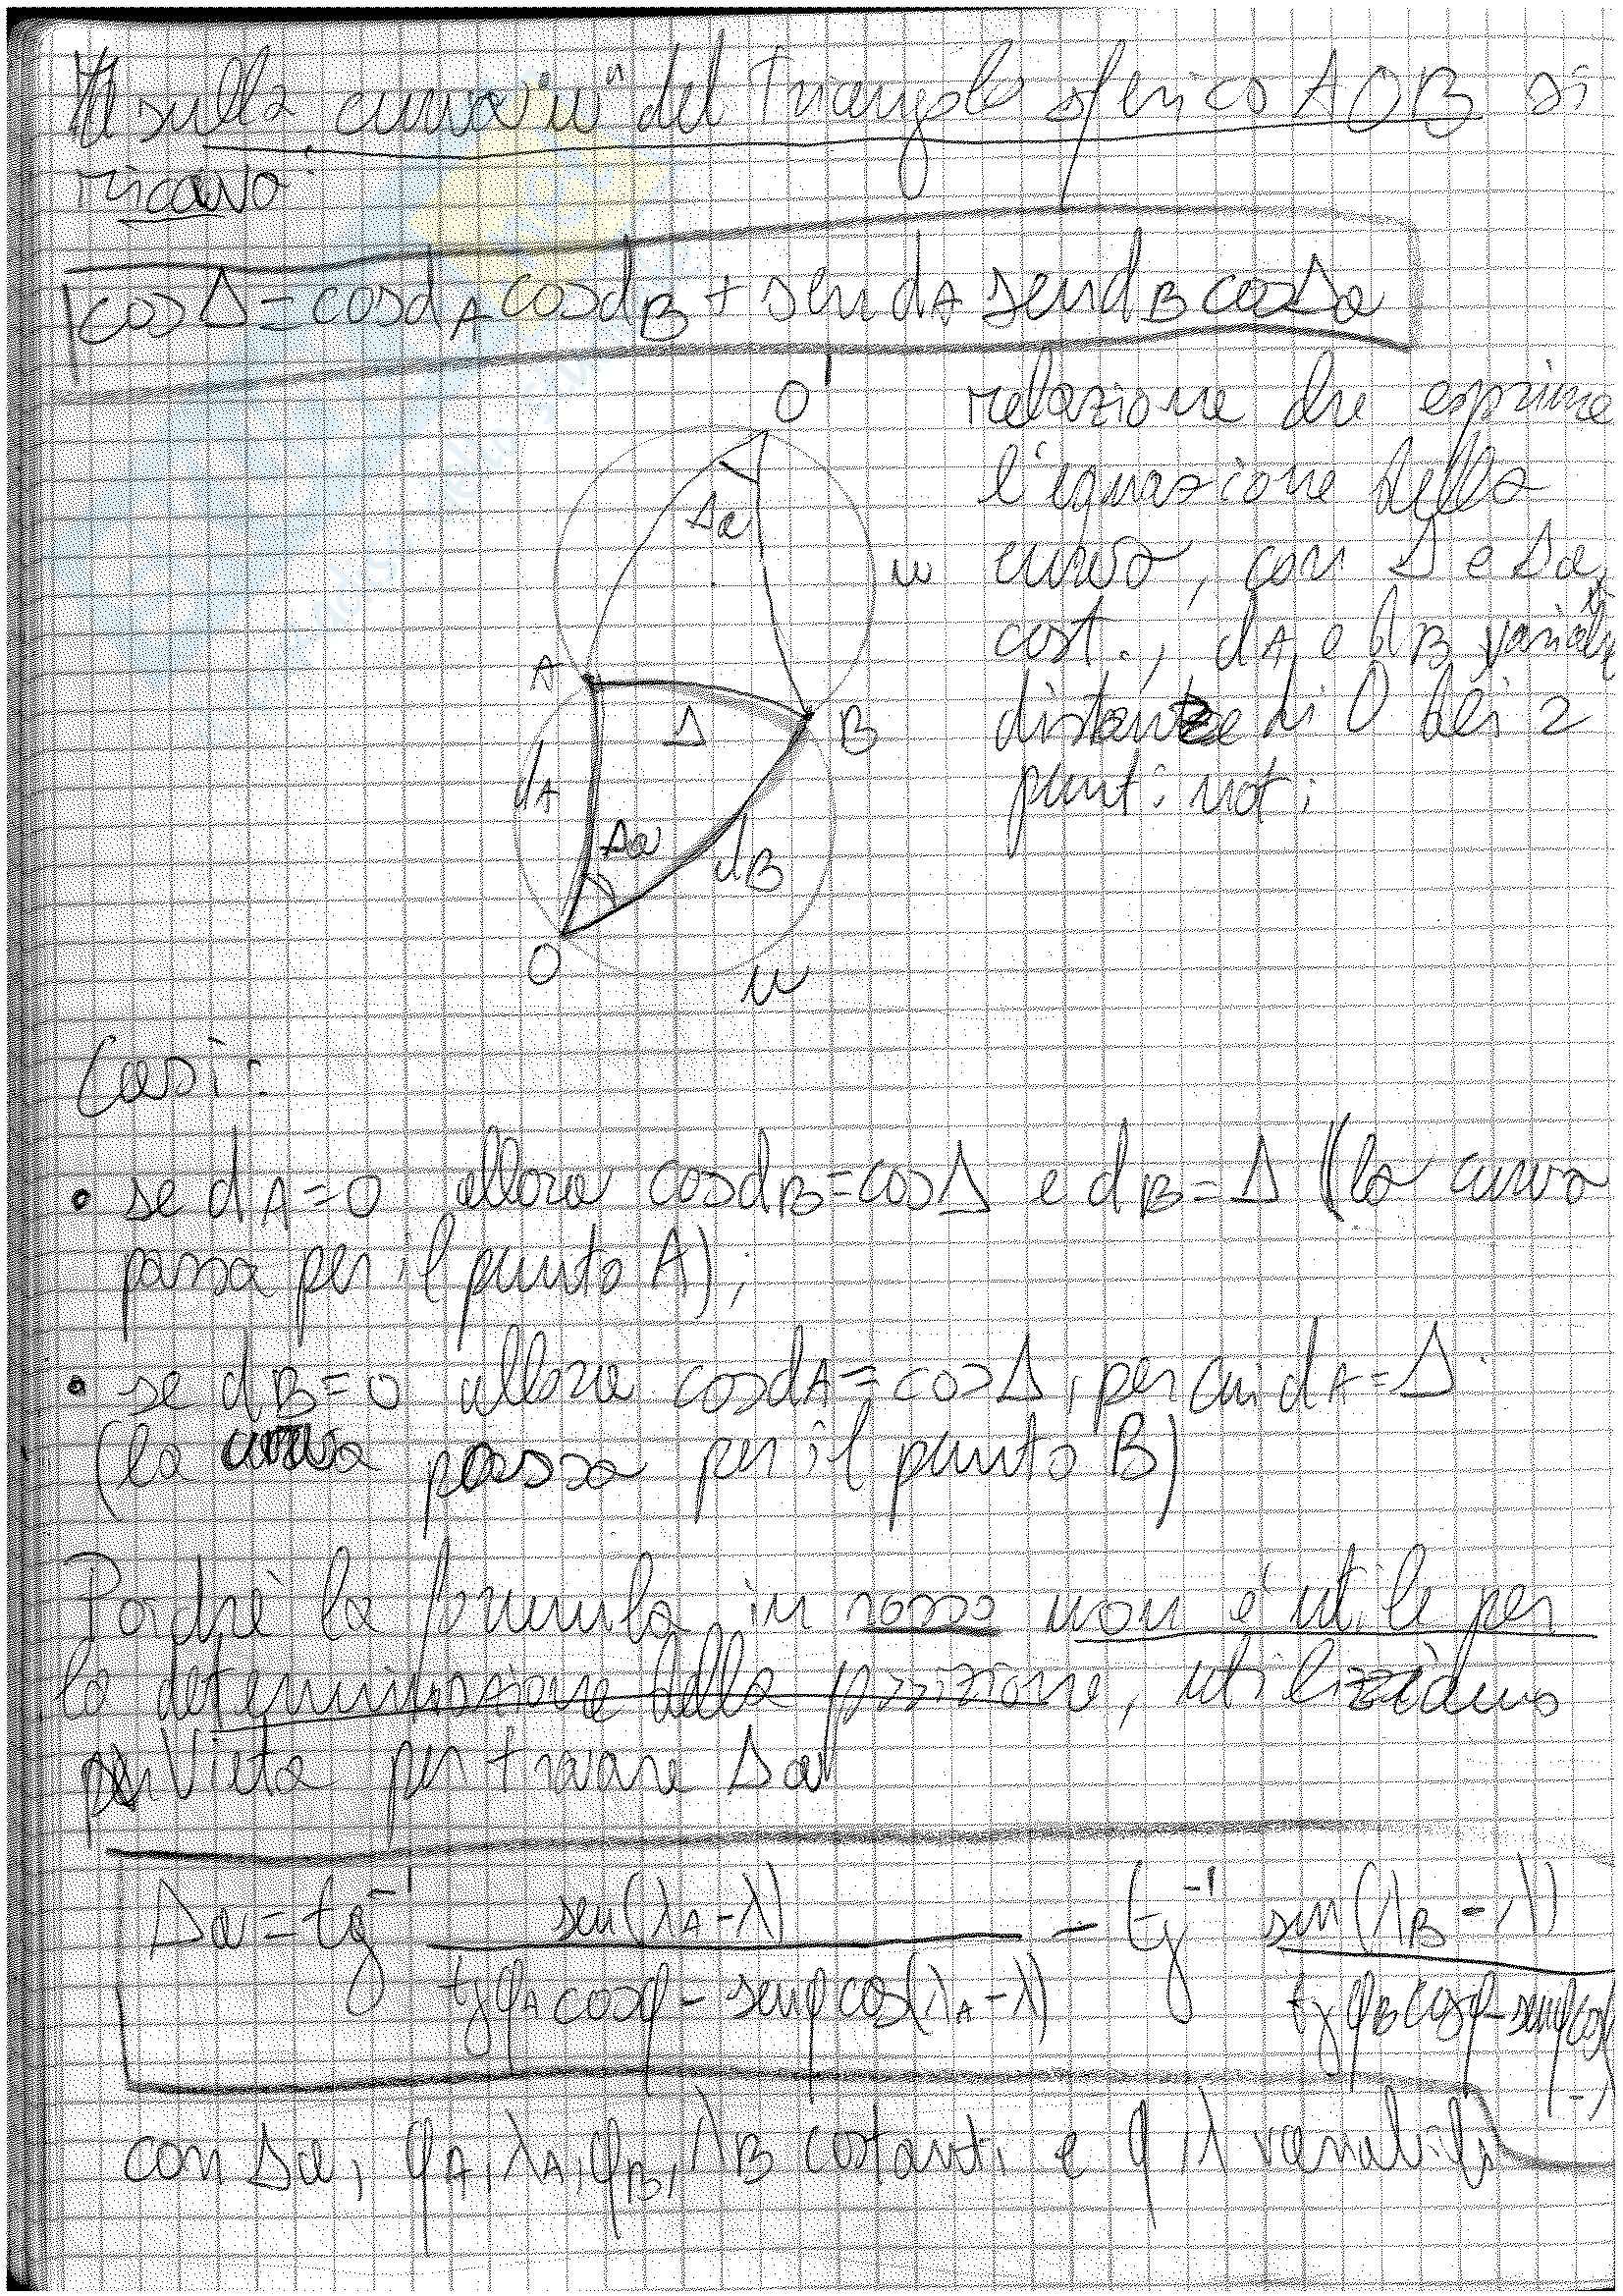 sulla curva "u" del Triangolo sferico AOB si
ricava:
cosΔ = cosdA cosdB + sendA sendB cosΔa
O'
relazione che esprime
l'equazione della
Δa
u
curva, con Δ e Δa
cost., dA e dB variabili
A
Δ
B
distanze di O dei 2
dA
punti noti
Δa
dB
O
u
Casi:
• se dA=0 allora cosdB=cosΔ e dB=Δ (la curva
passa per il punto A);
• se dB=0 allora cosdA=cosΔ, per cui dA=Δ
(la curva passa per il punto B)
Poichè la formula in rosso non è utile per
la determinazione della posizione, utilizziamo
Vieta per trovare Δa
Δa = tg⁻¹ sen(λA-λ) / tgφA cosφ - senφ cos(λA-λ) - tg⁻¹ sen(λB-λ) / tgφB cosφ - senφ cos(
-λ
con Δa, φA, λA, φB, λB costanti e φ λ variabili